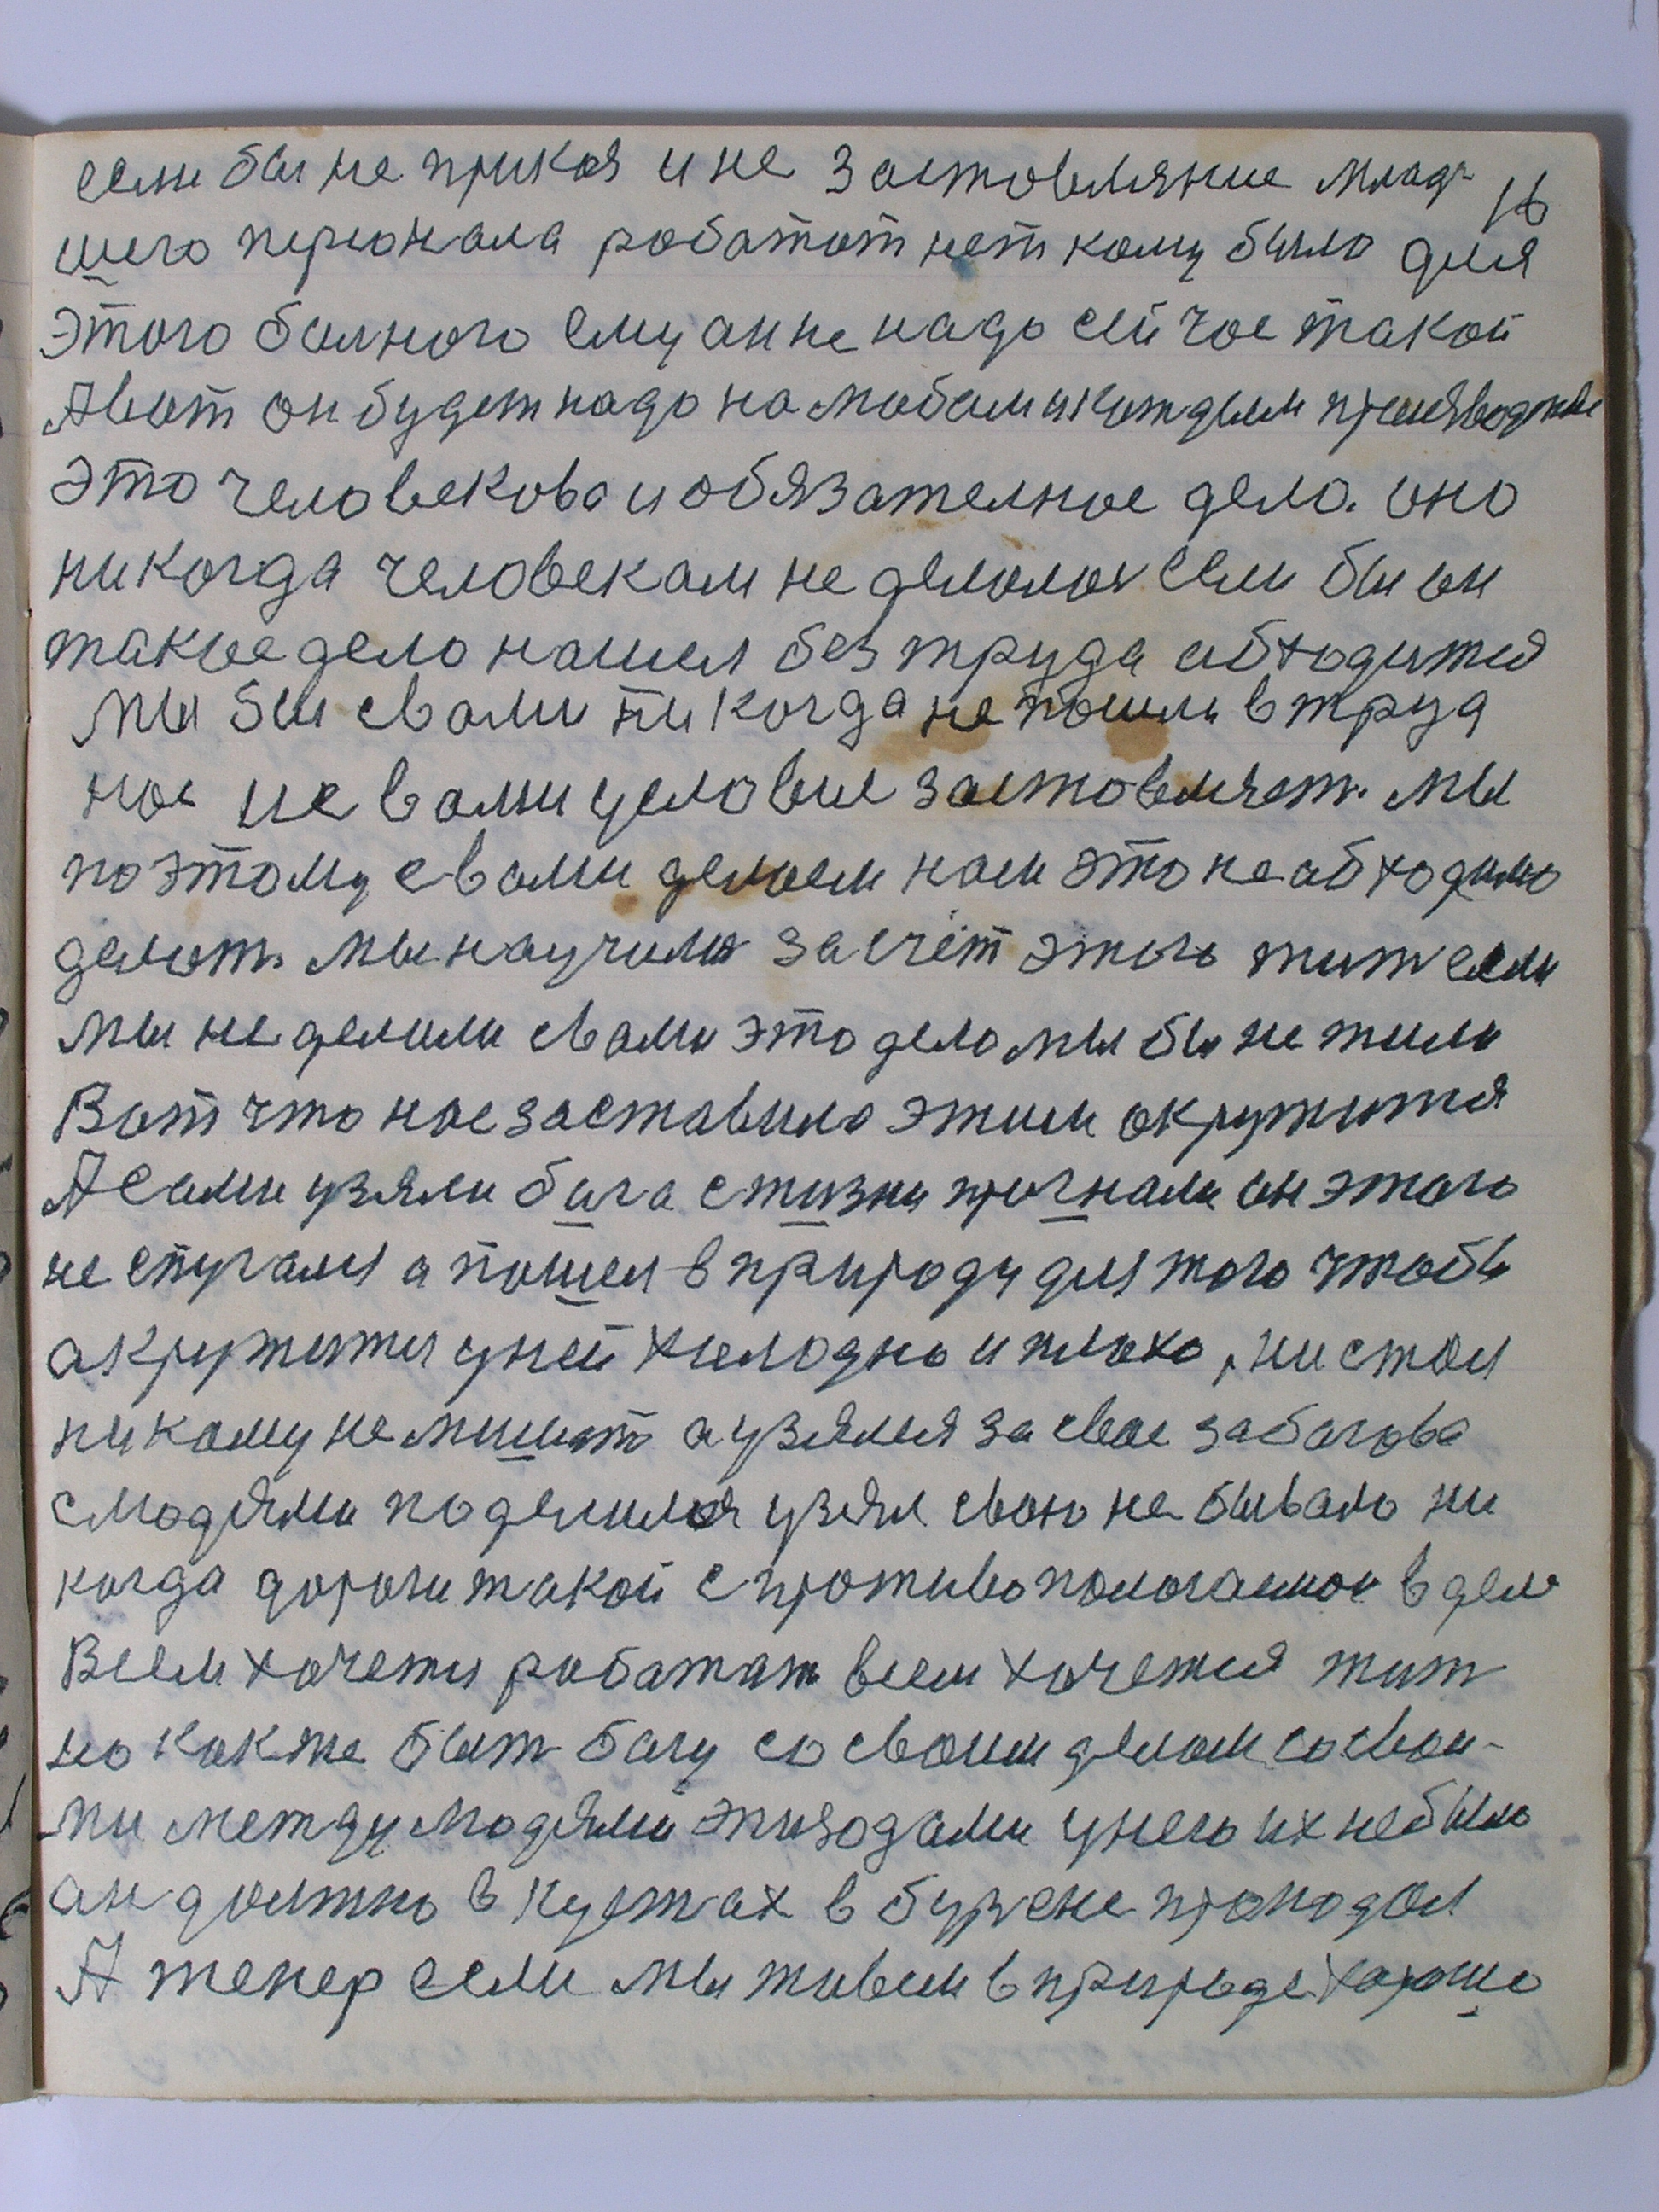 если бы не приказ и не застовляние млад- 16
шего персонала работот нет кому было для
этого балного ему ан не надо сей час такой
А вот он будет надо на любом и каждом производстве
это человекова и обязателное дело. оно
никогда человекам не делолос если бы он
такое дело нашел без труда абходится
мы бы с вами никогда не пошли в труд
нас не вами условие застовляет. мы
поэтому с вами делаем нам это не абходимо
делат. мы научилис за счёт этого жит если
мы не делали с вами это дело мы бы не жили
Вот что нас заставило этим окружится
А сами узяли бога с жизни прогнали он этого
не спугался а пошел в природу для того чтобы
акружится у ней холодно и плохо, ни стал
никому не мишат а узялся за свое за богова
с людями поделился узял свою не бывало ни
когда дороги такой с противополагаемой в деле
Всем хочется работат всем хочется жит
но как же быт богу со своим делом со свои-
ми между людями эпизодами у него их не было
ан должно в кустах в бурене проподал
А тепер если мы живем в природе харошо